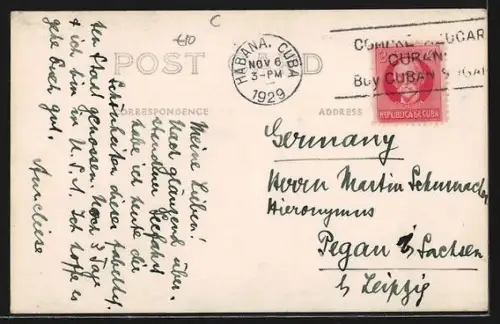 €10
C
POST CARD
CORRESPONDENCE
ADDRESS
HABANA, CUBA
NOV 6
3-PM
1929
COMPRE AZUCAR
CUBANA
BUY CUBAN SUGAR
REPUBLICA DE CUBA
Meine Lieben!
Nach glänzend über-
standener Seefahrt
habe ich heute die
Schönheiten dieser fabelhaf-
ten Stadt genossen. Noch 3 Tage
& ich bin in U.S.A. Ich hoffe es
geht Euch gut.
Anneliese
Germany
Herrn Martin Schumacher
Hieronymus
Pegau i/ Sachsen
b/ Leipzig